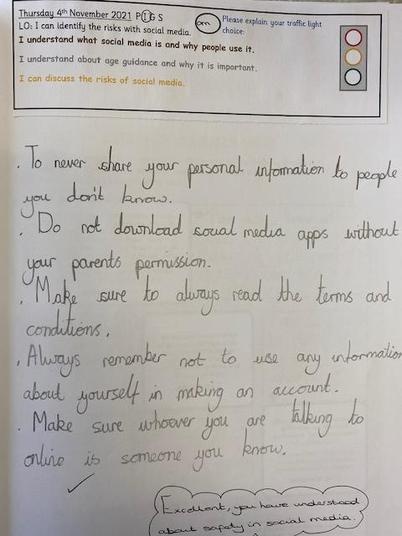 Thursday 4th November 2021 P I G S
LO: I can identify the risks with social media.
I understand what social media is and why people use it.
I understand about age guidance and why it is important.
I can discuss the risks of social media.
Please explain your traffic light
choice:
. To never share your personal information to people
you don't know.
. Do not download social media apps without
your parents permission.
. Make sure to always read the terms and
conditions.
. Always remember not to use any information
about yourself in making an account.
. Make sure whoever you are talking to
online is someone you know.
Excellent, you have understood
about safety in social media.